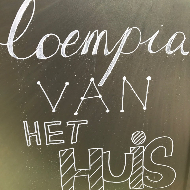 loempia
VAN
HET
HUIS